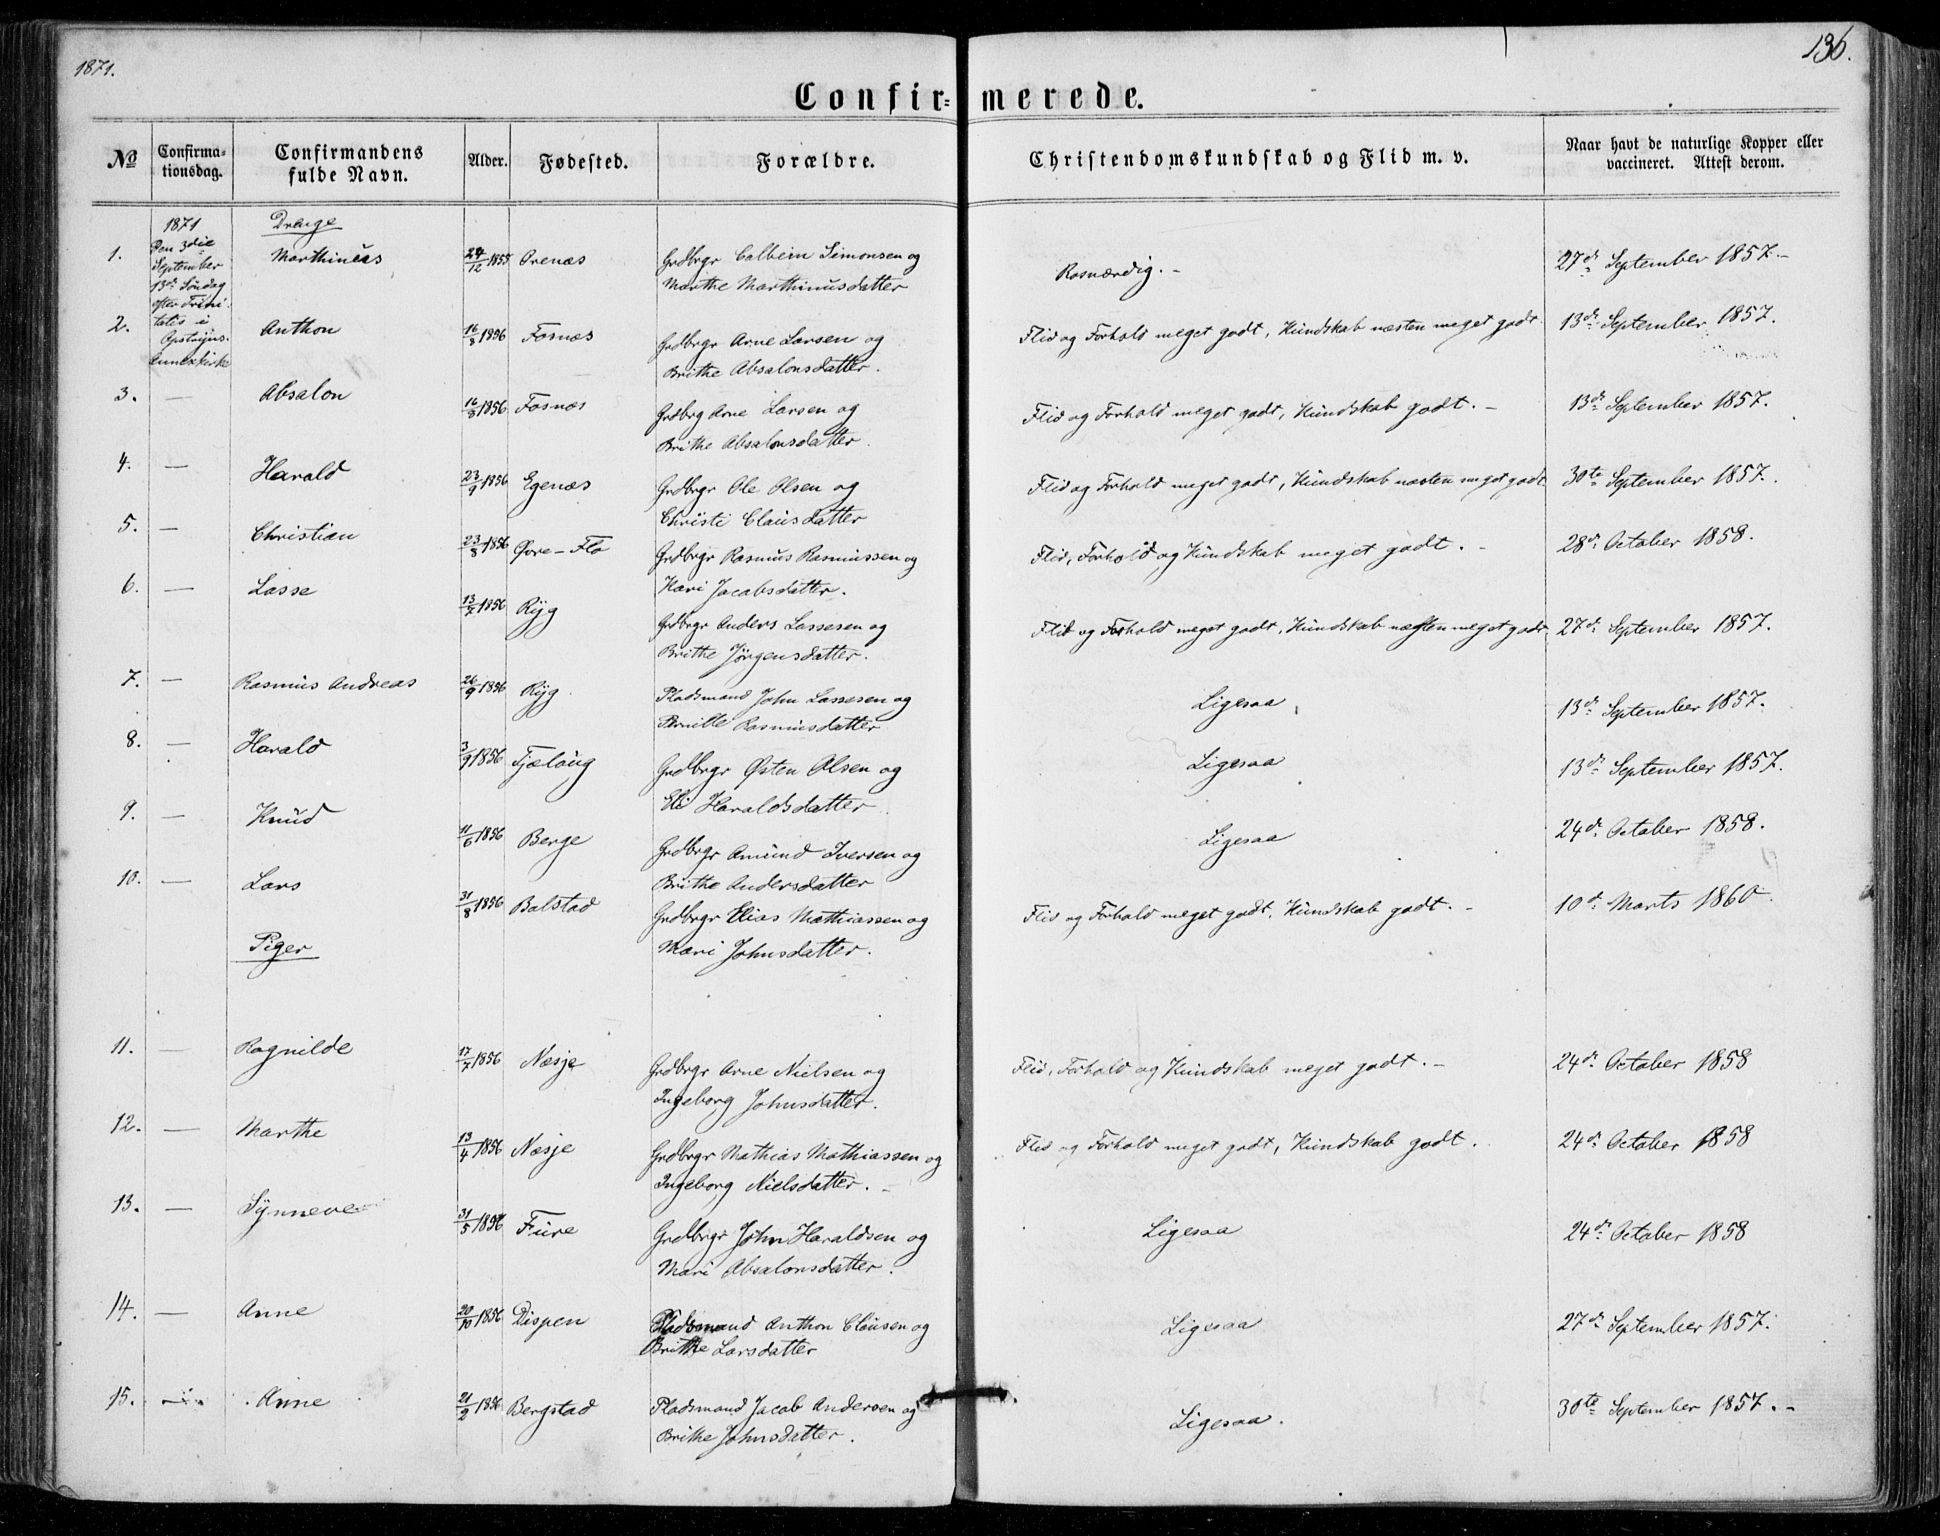 1871.
136.
Confir= merede.
No Confirma=tionsdag. Confirmandens fulde Navn. Alder. Fødested. Forældre. Christendomskundskab og Flid m. v. Naar havt de naturlige Kopper eller vaccineret. Attest derom.
1871 Drenge
Den 3die
September
13de Søndag
efter Trini-
tatis i
Opstryns
Annexkirke
1. Marthinus 24/12 1855 Ørenæs Grdbrgr Colbein Simonsen og Rosværdig. - 27de September 1857. -
Marthe Marthinusdatter
2. Anthon 16/8 1856 Fosnæs Grdbrgr Arne Larsen og Flid og Forhold meget godt, Kundskab næsten meget godt 13de September 1857.
Brithe Absalonsdatter.
3. — Absalon 16/8 1856 Fosnæs Grdbrg Arne Larsen og Flid og Forhold meget godt, Kundskab godt. - 13de September 1857.
Brithe Absalonsdatter.
4. — Harald 23/9 1856 Egenæs Grdbrgr Ole Olsen og Flid og Forhold meget godt, Kundskab næsten meget godt. 30te September 1857.
Christi Clausdatter
5. — Christian 23/8 1856 Øvre-Flo Grdbrgr Rasmus Rasmussen og Flid, Forhold og Kundskab meget godt. - 28de October 1858.
Kari Jacobsdatter.
6. — Lasse 13/7 1856 Ryg Grdbrgr Anders Lassesen og Flid og Forhold meget godt, Kundskab næsten meget godt 27de September 1857.
Brithe Jørgensdatter.
7. — Rasmus Andreas 26/9 1856 Ryg Pladsmand John Lassesen og Ligesaa 13de September 1857.
Pernille Rasmusdatter
8. — Harald 3/9 1856 Fjelaug Grdbrgr Østen Olsen og Ligesaa 13de September 1857.
Eli Haraldsdatter
9. — Knud 11/6 1856 Berge Grdbrgr Amund Iversen og Ligesaa 24de October 1858.
Brithe Andersdatter
10. — Lars 31/8 1856 Bolstad Grdbrgr Elias Mathiassen og Flid og Forhold meget godt, Kundskab godt. - 10de Marts 1860.
Mari Johnsdatter.
Piger
11. — Ragnilde 17/7 1856 Nesje Grdbrgr Arne Nielsen og Flid, Forhold og Kundskab meget godt. - 24de October 1858
Ingeborg Johnsdatter.
12. — Marthe 13/4 1856 Nesje Grdbrgr Mathias Mathiassen og Flid og Forhold meget godt, Kundskab godt. 24de October 1858
Ingeborg Nielsdatter. -
13. — Synneve 31/5 1856 Fure Grdbrgr John Haraldsen og Ligesaa 24de October 1858
Mari Absalonsdatter.
14. — Anne 20/10 1856 Dispen Pladsmand Anthon Clausen og Ligesaa 27de September 1857.
Brithe Larsdatter
15. — Anne 21/2 1856 Bergstad Pladsmand Jacob Andersen og Ligesaa. 30te September 1857. -
Brithe Johnsdatter.